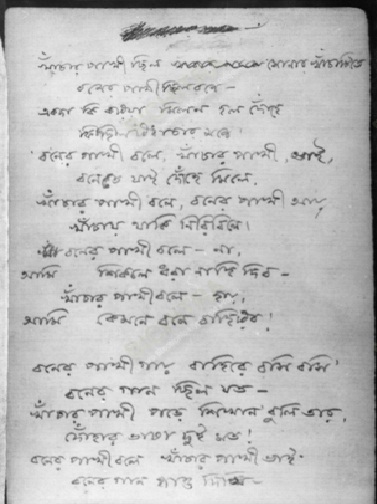 খাঁচার পাখী ছিল সোনার খাঁচাটিতে
বনের পাখী ছিল বনে—
একদা কি করিয়া মিলন হল দোঁহে
কি ছিল বিধাতার মনে!
বনের পাখী বলে, খাঁচার পাখী, ভাই,
বনেতে যাই দোঁহে মিলে,
খাঁচার পাখী বলে, বনের পাখী আয়,
খাঁচায় থাকি নিরিবিলে।
বনের পাখী বলে— না,
আমি শিকলে ধরা নাহি দিব—
খাঁচার পাখী বলে— হায়,
আমি কেমনে বনে বাহিরিব!
বনের পাখী গাহে বাহিরে বসি বসি
বনের গান ছিল যত—
খাঁচার পাখী পড়ে শিখানো বুলি তার,
দোঁহার ভাষা দুই মত!
বনের পাখী বলে খাঁচার পাখী ভাই
বনের গান গাও দিখি—